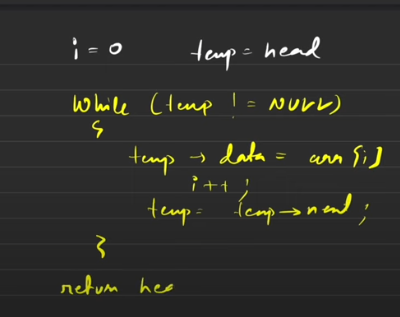 i = 0 temp = head
while (temp != NULL)
{
temp → data = arr[i]
i++ ;
temp = temp → next ;
}
return hea